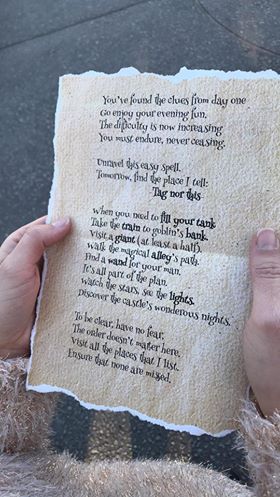 You've found the clues from day one
Go enjoy your evening fun.
The difficulty is now increasing
You must endure, never ceasing.
Unravel this easy spell.
Tomorrow, find the place I tell:
Tag nor this
When you need to fill your tank
Take the train to goblin's bank.
Visit a giant (at least a half),
Walk the magical alley's path.
Find a wand for your man,
It's all part of the plan.
Watch the stars, see the lights,
Discover the castle's wonderous nights.
To be clear, have no fear,
The order doesn't matter here.
Visit all the places that I list.
Ensure that none are missed.